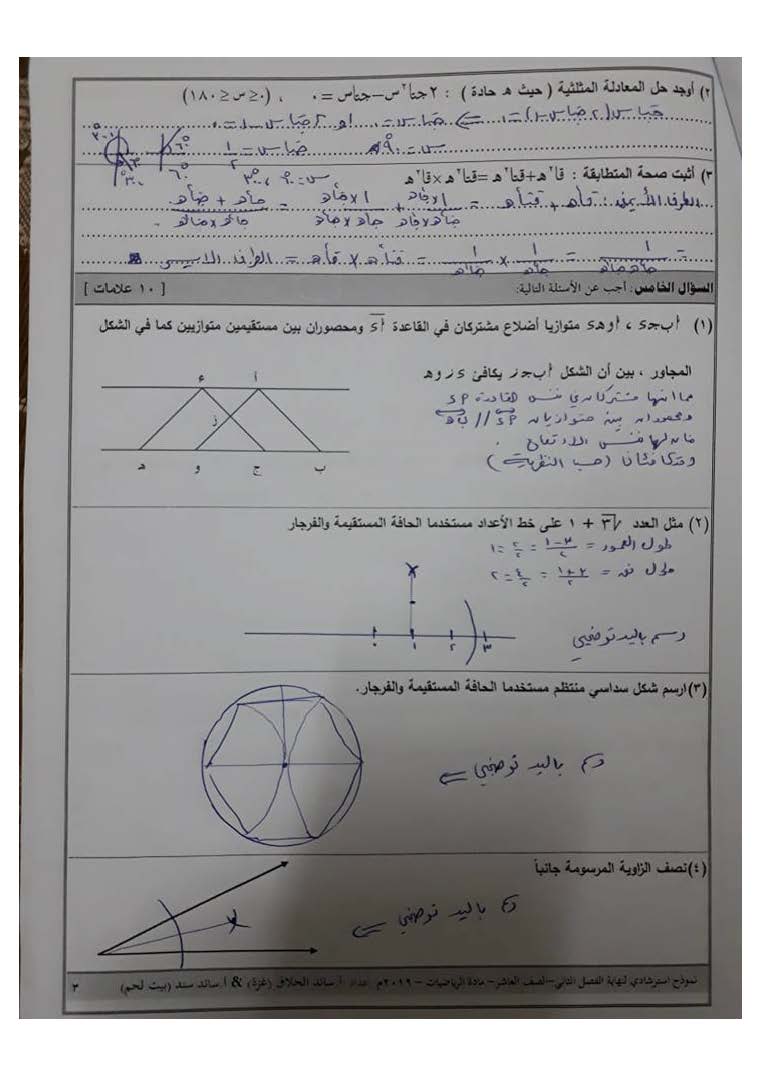 ٢) أوجد حل المعادلة المثلثية ( حيث هـ حادة ) : ٢جتا٢س−جتاس = ٠ ، (٠≤ س ≤ ١٨٠)
جتاس(٢جتاس−١)=٠ ⇐ جتاس=٠ او ٢جتاس−١=٠
س=٩٠° جتاس= ١/٢
٦٠° ٦٠° ٣٠٠°
س=٩٠° ، ٦٠°
٣) أثبت صحة المتطابقة : قا٢هـ+قتا٢هـ =قتا٢هـ×قا٢هـ
الطرف الأيمن : قا٢هـ + قتا٢هـ =
= الطرف الايسر
السؤال الخامس: أجب عن الأسئلة التالية: [ ١٠ علامات ]
(١) أ ب جـ د ، أ و هـ د متوازيا أضلاع مشتركان في القاعدة أ د ومحصوران بين مستقيمين متوازيين كما في الشكل
المجاور ، بين أن الشكل أ ب جـ ز يكافئ د ز و هـ
بما انها مشتركان في نفس القاعدة أ د
ومحصوران بين متوازيان أ د // ب هـ
فان لها نفس الارتفاع .
ومتكافئتان (حسب النظرية)
ء أ
ز
هـ و ج ب
(٢) مثل العدد √٣ + ١ على خط الأعداد مستخدما الحافة المستقيمة والفرجار
طول العمود = ٣−١/٢ = ٢/٢ = ١
طول نق = ٣+١/٢ = ٤/٢ = ٢
٠ ١ ٢ ٣
رسم باليد توضيحي
(٣)ارسم شكل سداسي منتظم مستخدما الحافة المستقيمة والفرجار.
رسم باليد توضيحي ⇐
(٤)نصف الزاوية المرسومة جانباً
رسم باليد توضيحي ⇐
نموذج استرشادي لنهاية الفصل الثاني−لصف العاشر− مادة الرياضيات − ٢٠١٩م إعداد أ.سائد الحلاق (غزة) & أ.سائد سند (بيت لحم) ٣